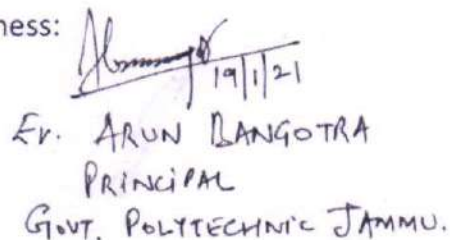 ness:
19/1/21
Er. ARUN BANGOTRA
PRINCIPAL
GOVT. POLYTECHNIC JAMMU.